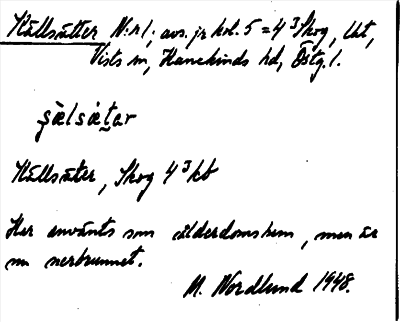 Källsätter N:r 1; avs. jr kol. 5 = 4³ Skog, Ut,
Vists sn, Hanekinds hd, Östg. l.
Källsäter, Skog 4³ kb
Har använts som ålderdomshem, men är
nu nerbrunnet.
M. Nordlund 1948.